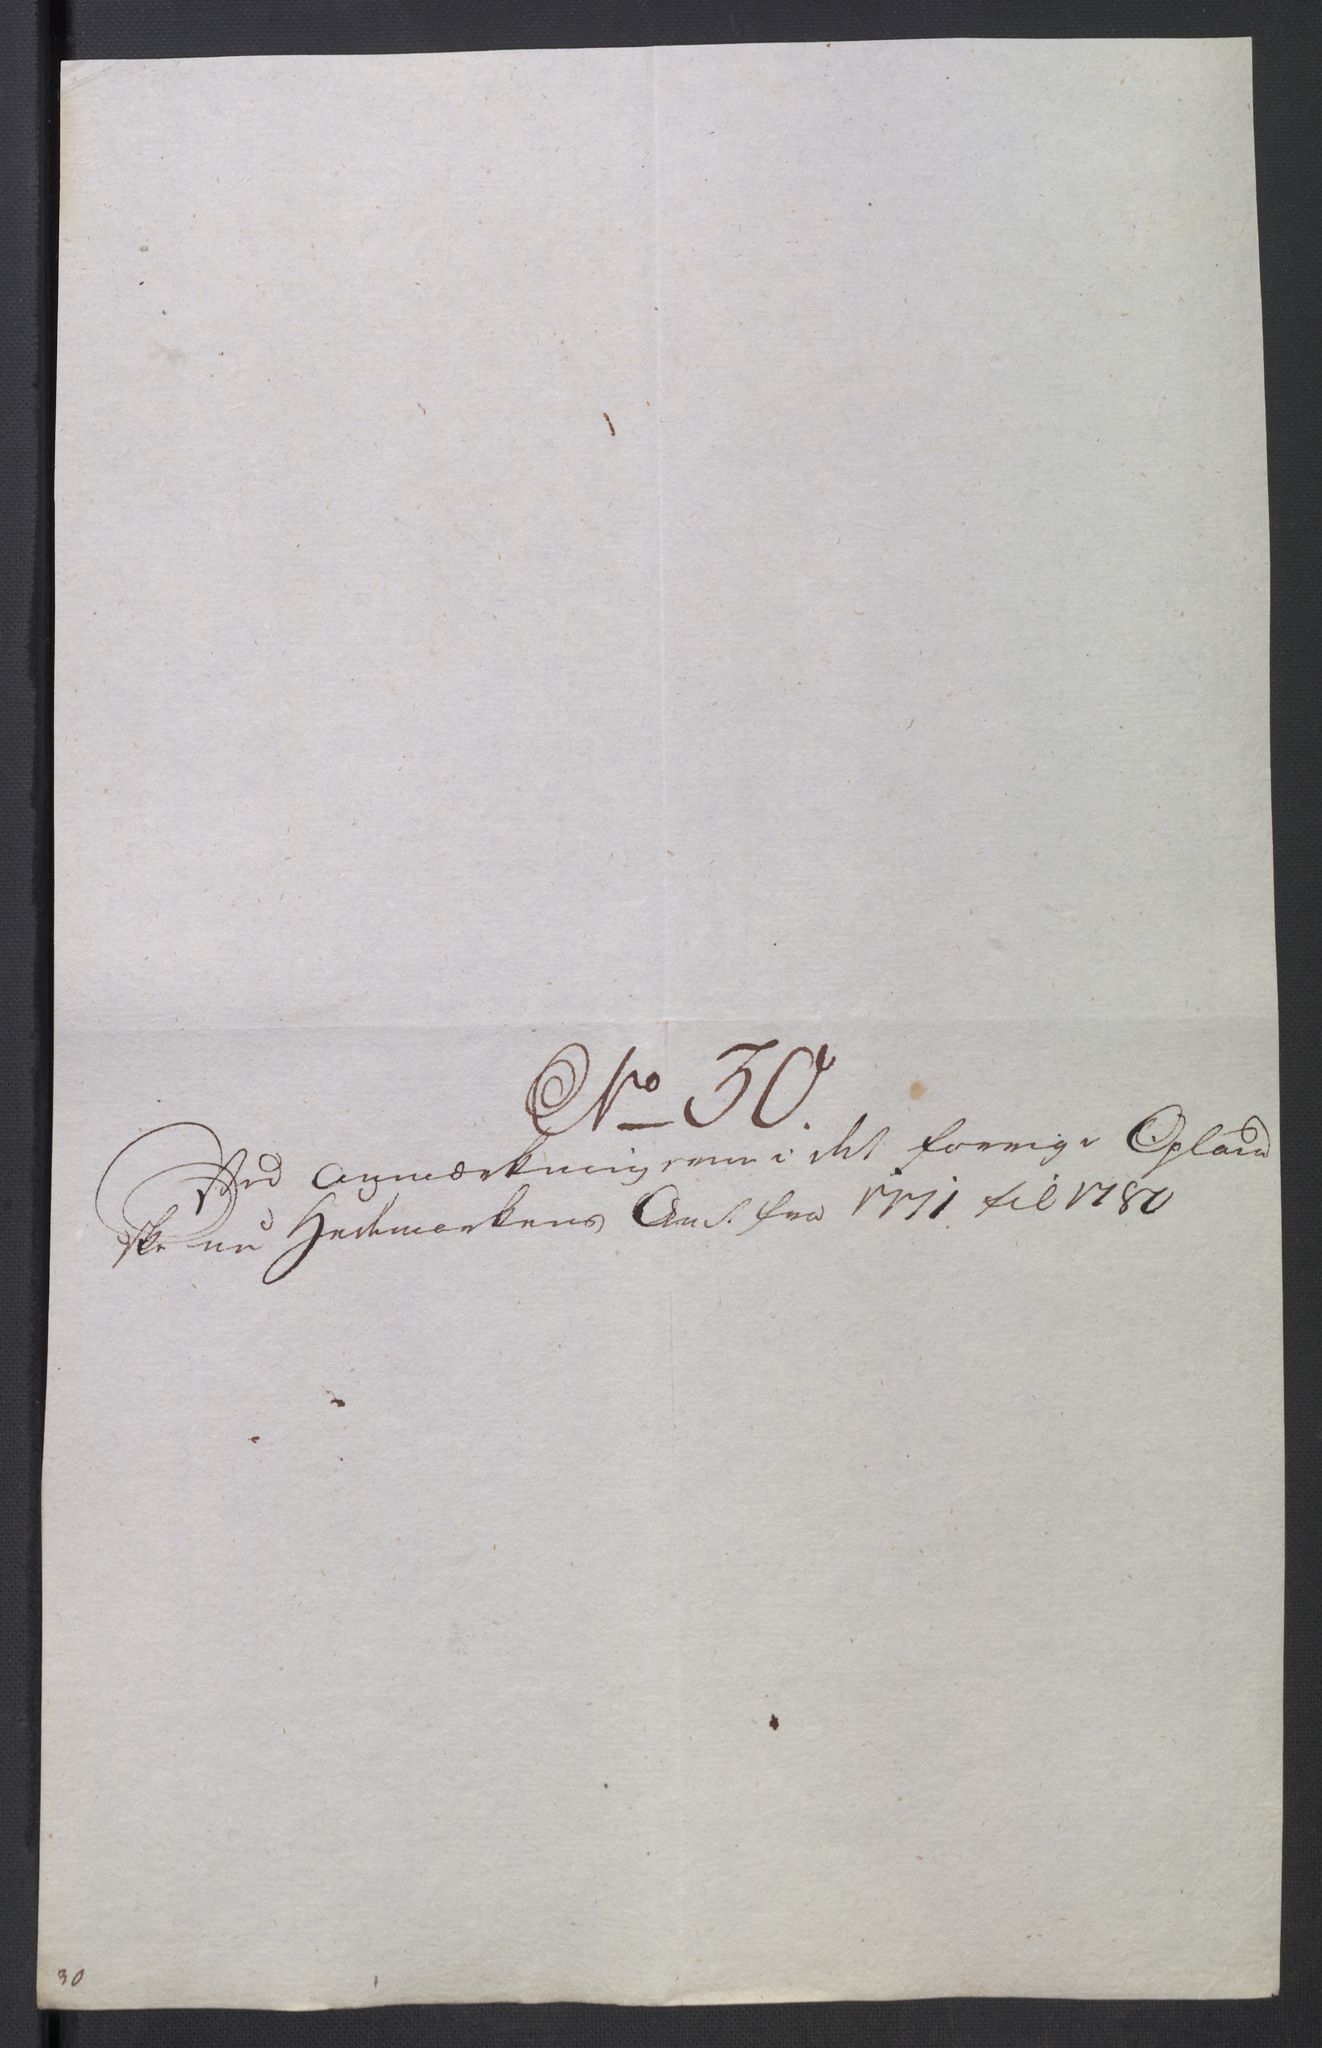 No 30.
Ved Anmærkningerne i det forrige Opland
ske nu Hedemarkens Amt. fra 1771 til 1780
30